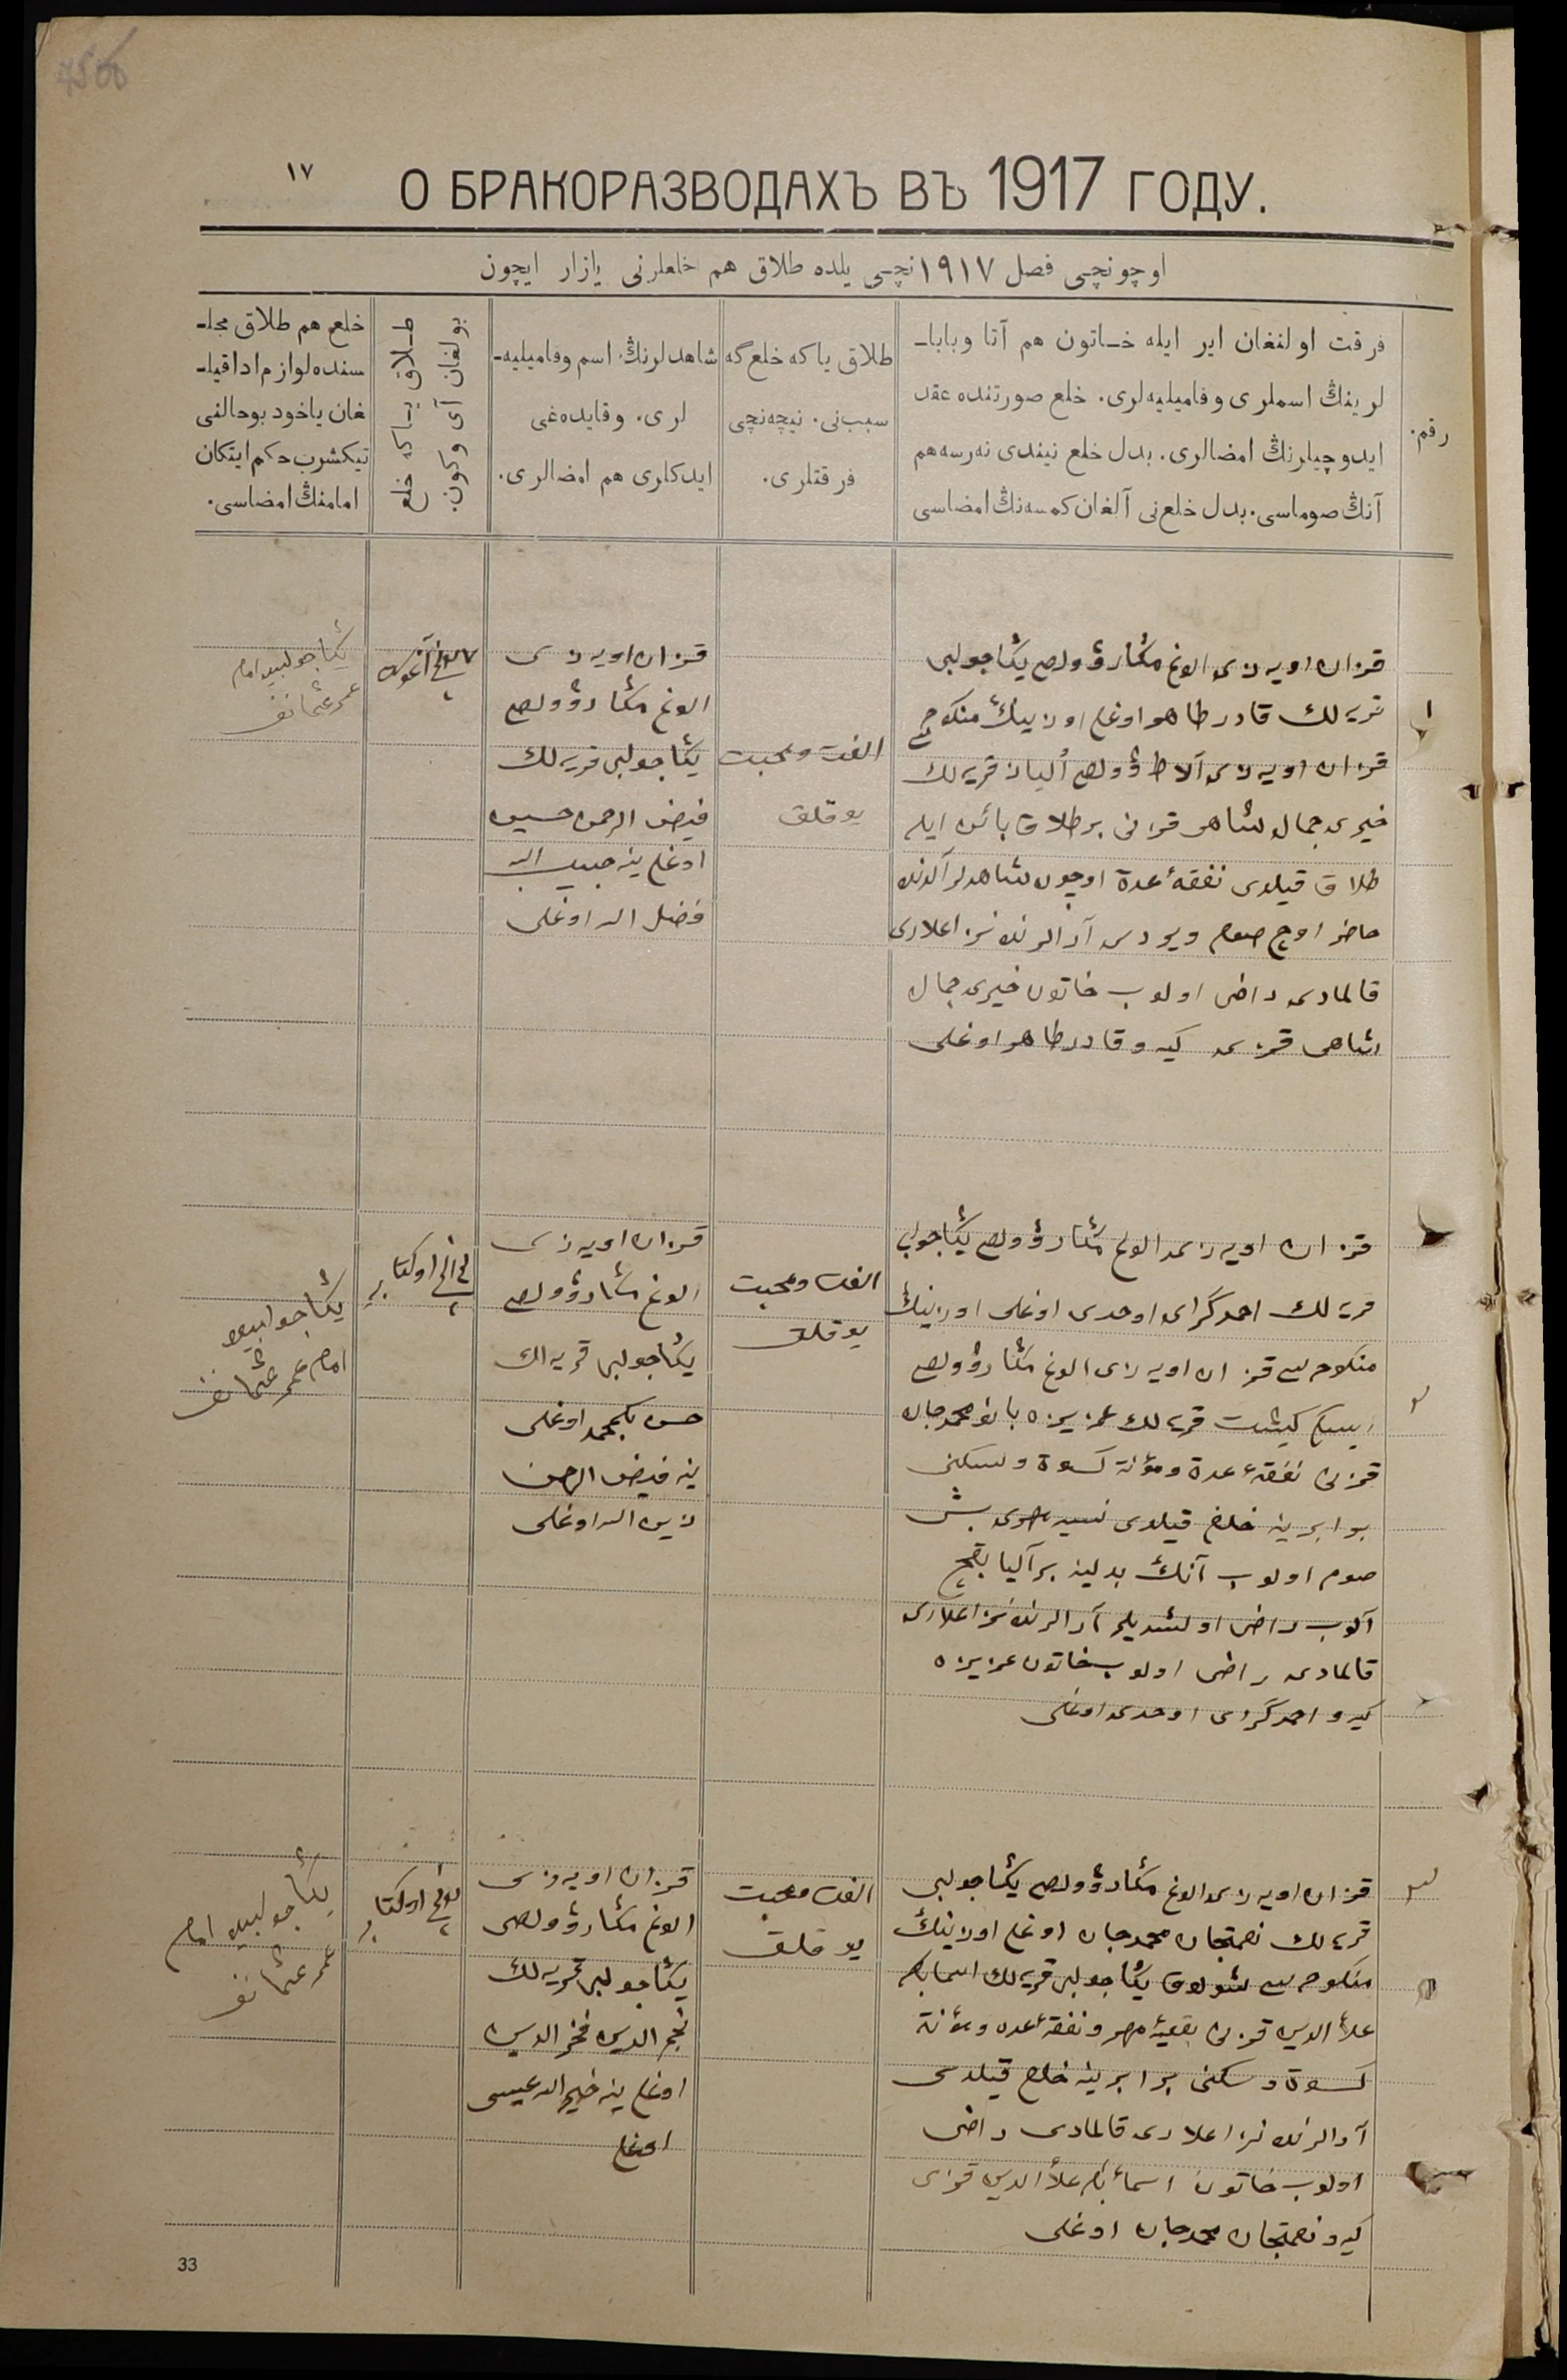 ١٧
О БРАКОРАЗВОДАХЪ ВЪ 1917 ГОДУ.
اوچونچی فصل ١٩١٧نچی یلده طلاق هم خلعلرنی یازار ایچون
رقم.
فرقت اولنغان ایر ایله خـاتون هم آتا وبابا‌ـ
لرینڭ اسملری وفامیلیه‌لری. خلع صورتنده عقد
ایدوچیلرنڭ امضالری. بدل خلع نیندی نه‌رسه هم
آنڭ صوماسی. بدل خلع‌نی آلغان کمسه‌نڭ امضاسی
طلاق یا که خلع گه
سبب‌نی. نیچه‌نچی
فرقتلری.
شاهدلرنڭ اسم وفامیلیه‌ـ
لری. وقایده‌غی
ایدکلری هم امضالری.
طـلاق یـا که خلع
بولغان آی وکون.
خلع هم طلاق مجلـ
سنده لوازم ادا قیلـ
غان یاخود بوحالنی
تیکشرب حکم ایتکان
امامنڭ امضاسی.
١
قزان اویه‌زی الوغ مڭارۋ ولصی یڭاجولبی
قریه‌لك قادر طاهر اوغلی اوزینڭ منکوحه‌سی
قزان اویه‌زی آلاط ۋولصی قریه‌لك
خیری جمال شاهی قزنی بر طلاق بائن ایله
طلاق قیلدی نفقهٔ عدة اوچون شاهدلر آلدنده
حاضر اوچ صوم ویردی آرالرنده نزاعلاری
قالمادی راضی اولوب خاتون خیری جمال
شاهی قزی کیه‌و قادر طاهر اوغلی
الفت ومحبت
یوقلق
قزان اویه‌زی
الوغ مڭارۋ ولصی
یڭاجولبی قریه‌لك
فیض الرحمن حسین
اوغلی ینه حبیب الله
فضل الله اوغلی
آغوست
یڭاجولبی امام
عمر عثمانف
٢
قزان اویه‌زی الوغ مڭارۋ ولصی یڭاجولبی
قریه‌لك احمدگرای اوحدی اوغلی اوزینڭ
منکوحه‌سی قزان اویه‌زی الوغ مڭارۋ ولصی
قریه‌لك عزیزه بانو محمدجان
قزنی نفقهٔ عدة ومؤنة کسوة وسکنی
برابرینه خلع قیلدی نسیه مهری بش
صوم اولوب آنڭ بدلینه بر
آلوب راضی اولشدیلر آرالرنده نزاعلاری
قالمادی راضی اولوب خاتون عزیزه
کیه‌و احمدگرای اوحدی اوغلی
الفت ومحبت
یوقلق
قزان اویه‌زی
الوغ مڭارۋ ولصی
یڭاجولبی قریه‌لك
حسن بکمحمد اوغلی
ینه فیض الرحمن
زین الله اوغلی
اوکتابر
یڭاجولبی
امام عمر عثمانف
٣
قزان اویه‌زی الوغ مڭارۋ ولصی یڭاجولبی
قریه‌لك نعمتجان محمدجان اوغلی اوزینڭ
منکوحه‌سی شولوق یڭاجولبی قریه‌لك اسمابکم
علأ الدین قزنی بقیهٔ مهر ونفقهٔ عده ومؤنة
کسوة وسکنی برابرینه خلع قیلدی
آرالرنده نزاعلاری قالمادی راضی
اولوب خاتون اسمأ بکم علأ الدین قزی
کیه‌و نعمتجان محمدجان اوغلی
الفت ومحبت
یوقلق
قزان اویه‌زی
الوغ مڭارۋ ولصی
یڭاجولبی قریه‌لك
نجم الدین فخر الدین
اوغلی ینه خیر الله عیسی
اوغلی
اوکتابر
یڭاجولبی امام
عمر عثمانف
33